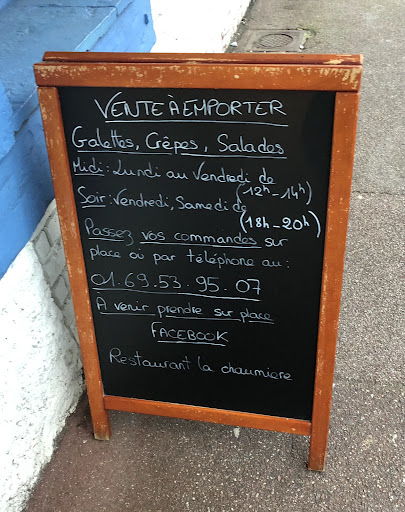 VENTE À EMPORTER
Galettes, Crêpes, Salades
Midi: Lundi au Vendredi de
(12h-14h)
Soir: Vendredi, Samedi de
(18h-20h)
Passez vos commandes sur
place où par téléphone au:
01.69.53.95.07
A venir prendre sur place
FACEBOOK
Restaurant la chaumiere